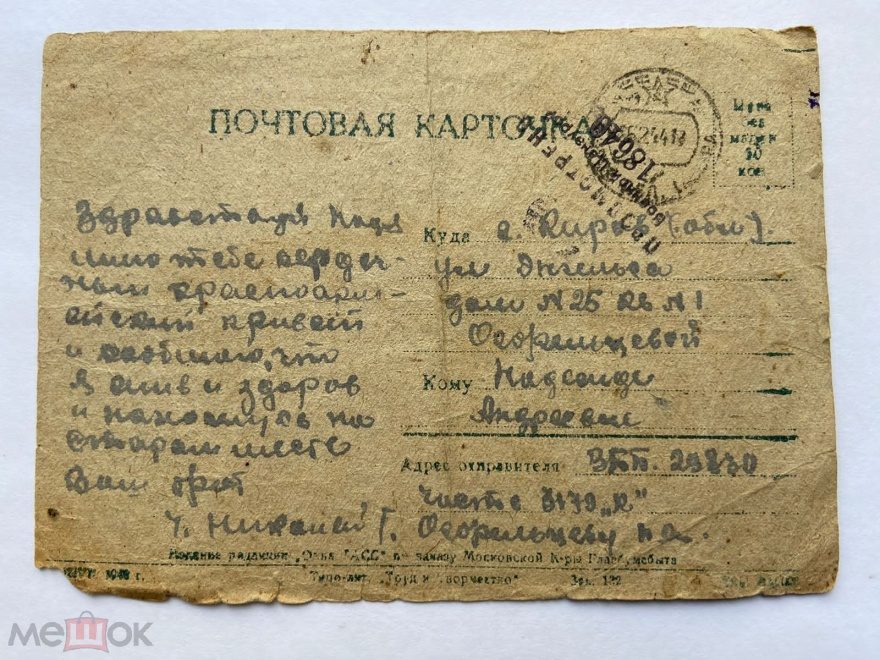 ПОЧТОВАЯ КАРТОЧКА
Марка
без
марки
10
коп
ПРОСМОТРЕНО
Военной Цензурой
18640
Здравствуй Надя
шлю тебе сердеч-
ный красноарм-
ейский привет
и сообщаю, что
я жив и здоров
и нахожусь на
старом месте
Ваш брат
Николай
Куда г. Киров (обл).
ул Энгельса
дом N 25 кв N 1
Кому
Надежде
Андреевне
Адрес отправителя ВПП. 29830
часть "К"
Издание редакции „Окна ТАСС" по заказу Московской К-ры Главбумсбыта
г. Типо-лит. „Труд и творчество" Зак. 132
мешок